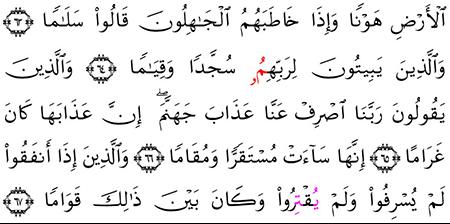 ٱلْأَرْضِ هَوْنًا وَإِذَا خَاطَبَهُمُ ٱلْجَٰهِلُونَ قَالُوا۟ سَلَٰمًا ٦٣
وَٱلَّذِينَ يَبِيتُونَ لِرَبِّهِمُۥ سُجَّدًا وَقِيَٰمًا ٦٤ وَٱلَّذِينَ
يَقُولُونَ رَبَّنَا ٱصْرِفْ عَنَّا عَذَابَ جَهَنَّمَ ۖ إِنَّ عَذَابَهَا كَانَ
غَرَامًا ٦٥ إِنَّهَا سَآءَتْ مُسْتَقَرًّا وَمُقَامًا ٦٦ وَٱلَّذِينَ إِذَآ أَنفَقُوا۟
لَمْ يُسْرِفُوا۟ وَلَمْ يُقْتِرُوا۟ وَكَانَ بَيْنَ ذَٰلِكَ قَوَامًا ٦٧